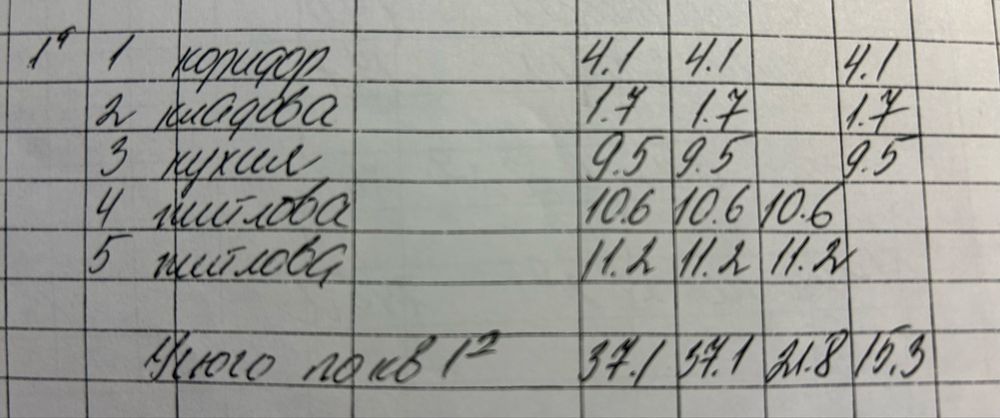 1 коридор 4.1 4.1 4.1
2 кладова 1.7 1.7 1.7
3 кухня 9.5 9.5 9.5
4 житлова 10.6 10.6 10.6
5 житлова 11.2 11.2 11.2
Усього по кв 1 37.1 37.1 21.8 15.3